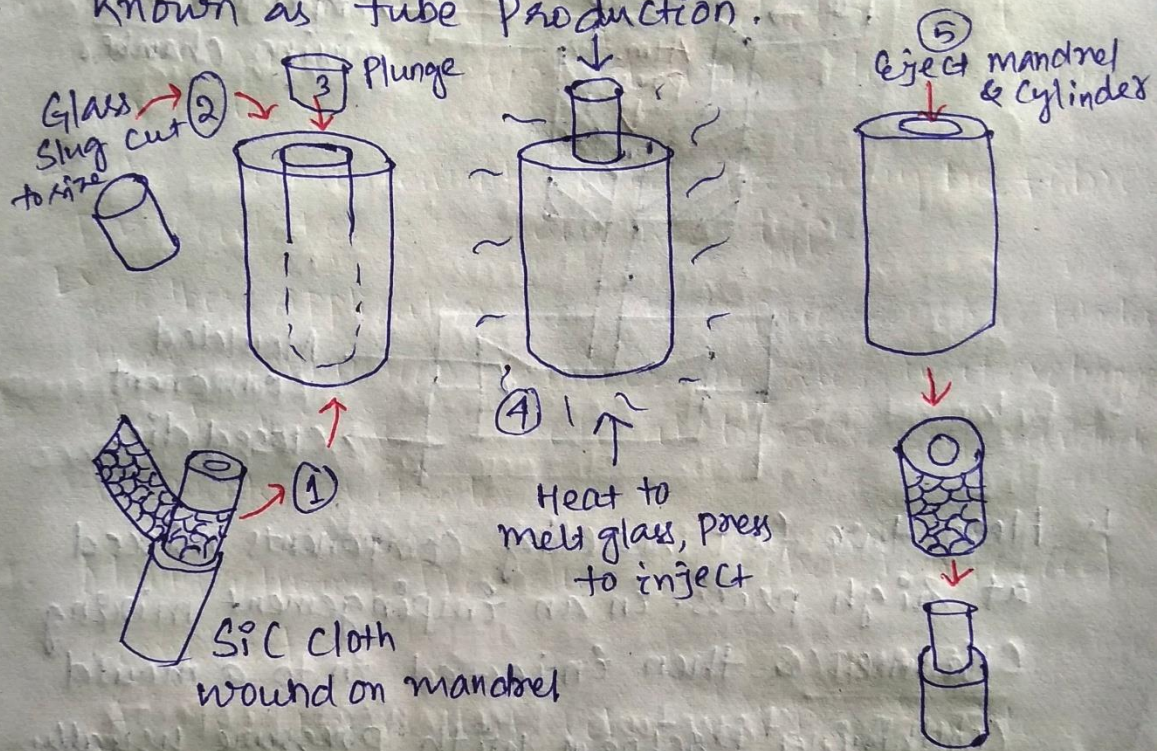 Known as Tube Production.
Glass
Slug cut
to size
2
3
Plunge
5
Eject mandrel
& Cylinder
4
1
Heat to
melt glass, press
to inject
SiC Cloth
wound on mandrel